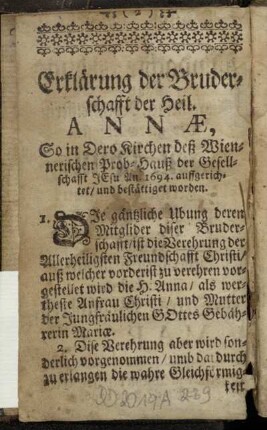 Erklärung der Bruder-
schafft der Heil.
ANNÆ,
So in Dero Kirchen deß Wien-
nerischen Prob-Hauß der Gesell-
schafft JEsu An. 1694. auffgerich-
tet/ und bestättiget worden.
1. DIe gäntzliche Ubung deren
Mitglider diser Bruder-
schafft/ ist die Verehrung der
Allerheiligsten Freundschafft Christi/
auß welcher vorderist zu verehren vor-
gestellet wird die H. Anna/ als wer-
theste Anfrau Christi/ und Mutter
der Jungfräulichen GOttes Gebäh-
rerin Mariæ.
2. Dise Verehrung aber wird son-
derlich vorgenommen/ umb dardurch
zu erlangen die wahre Gleichförmig-
keit